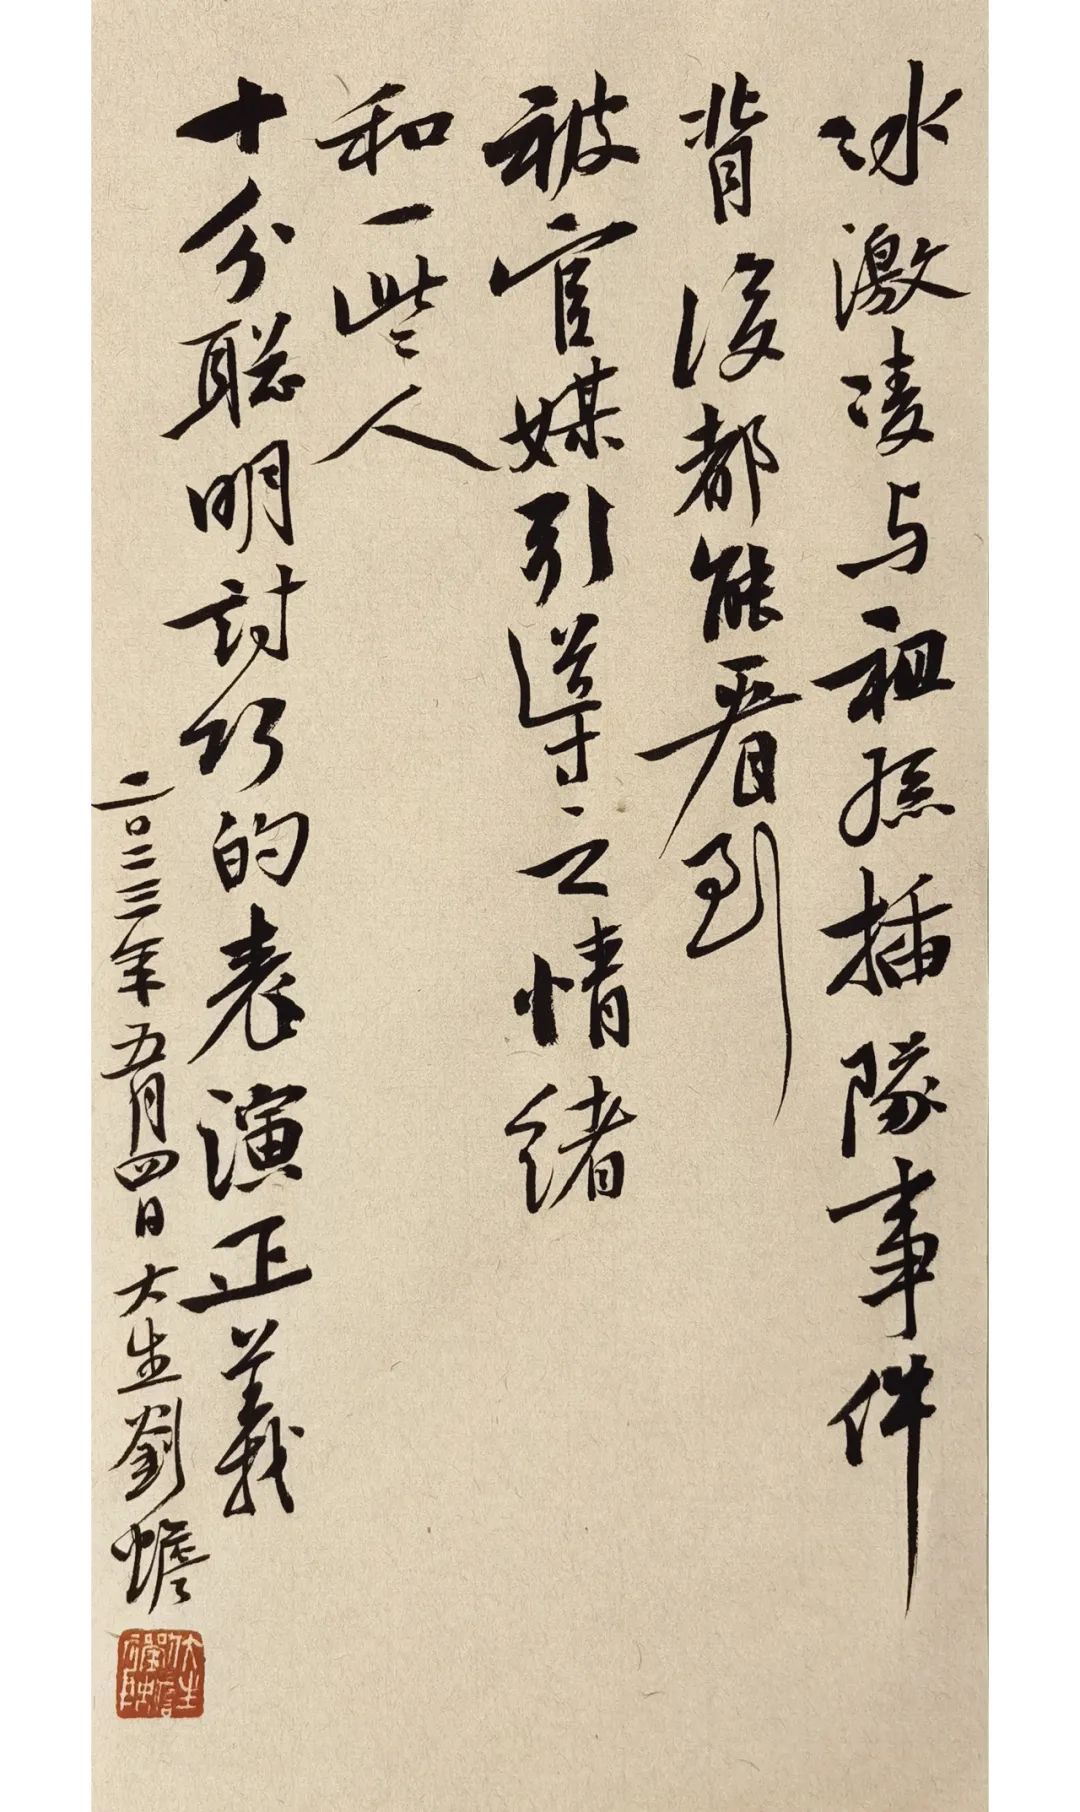 冰激凌与祖孫插隊事件
背後都能看到
被官媒引導之情绪
和一些人
十分聪明討巧的表演正義
二〇二三年五月四日大生劉蟾